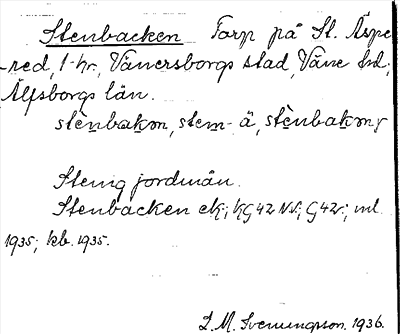 Stenbacken Torp på St. Äspe-
red, 1 hr, Vänersborgs stad, Väne hd,
Älfsborgs län.
stènbakən, stem- ä, stènbakən,
Stenig jordmån.
Stenbacken ek; KG42 NV; G42v; ml.
1935; kb. 1935.
L. M. Svenungsson. 1936.